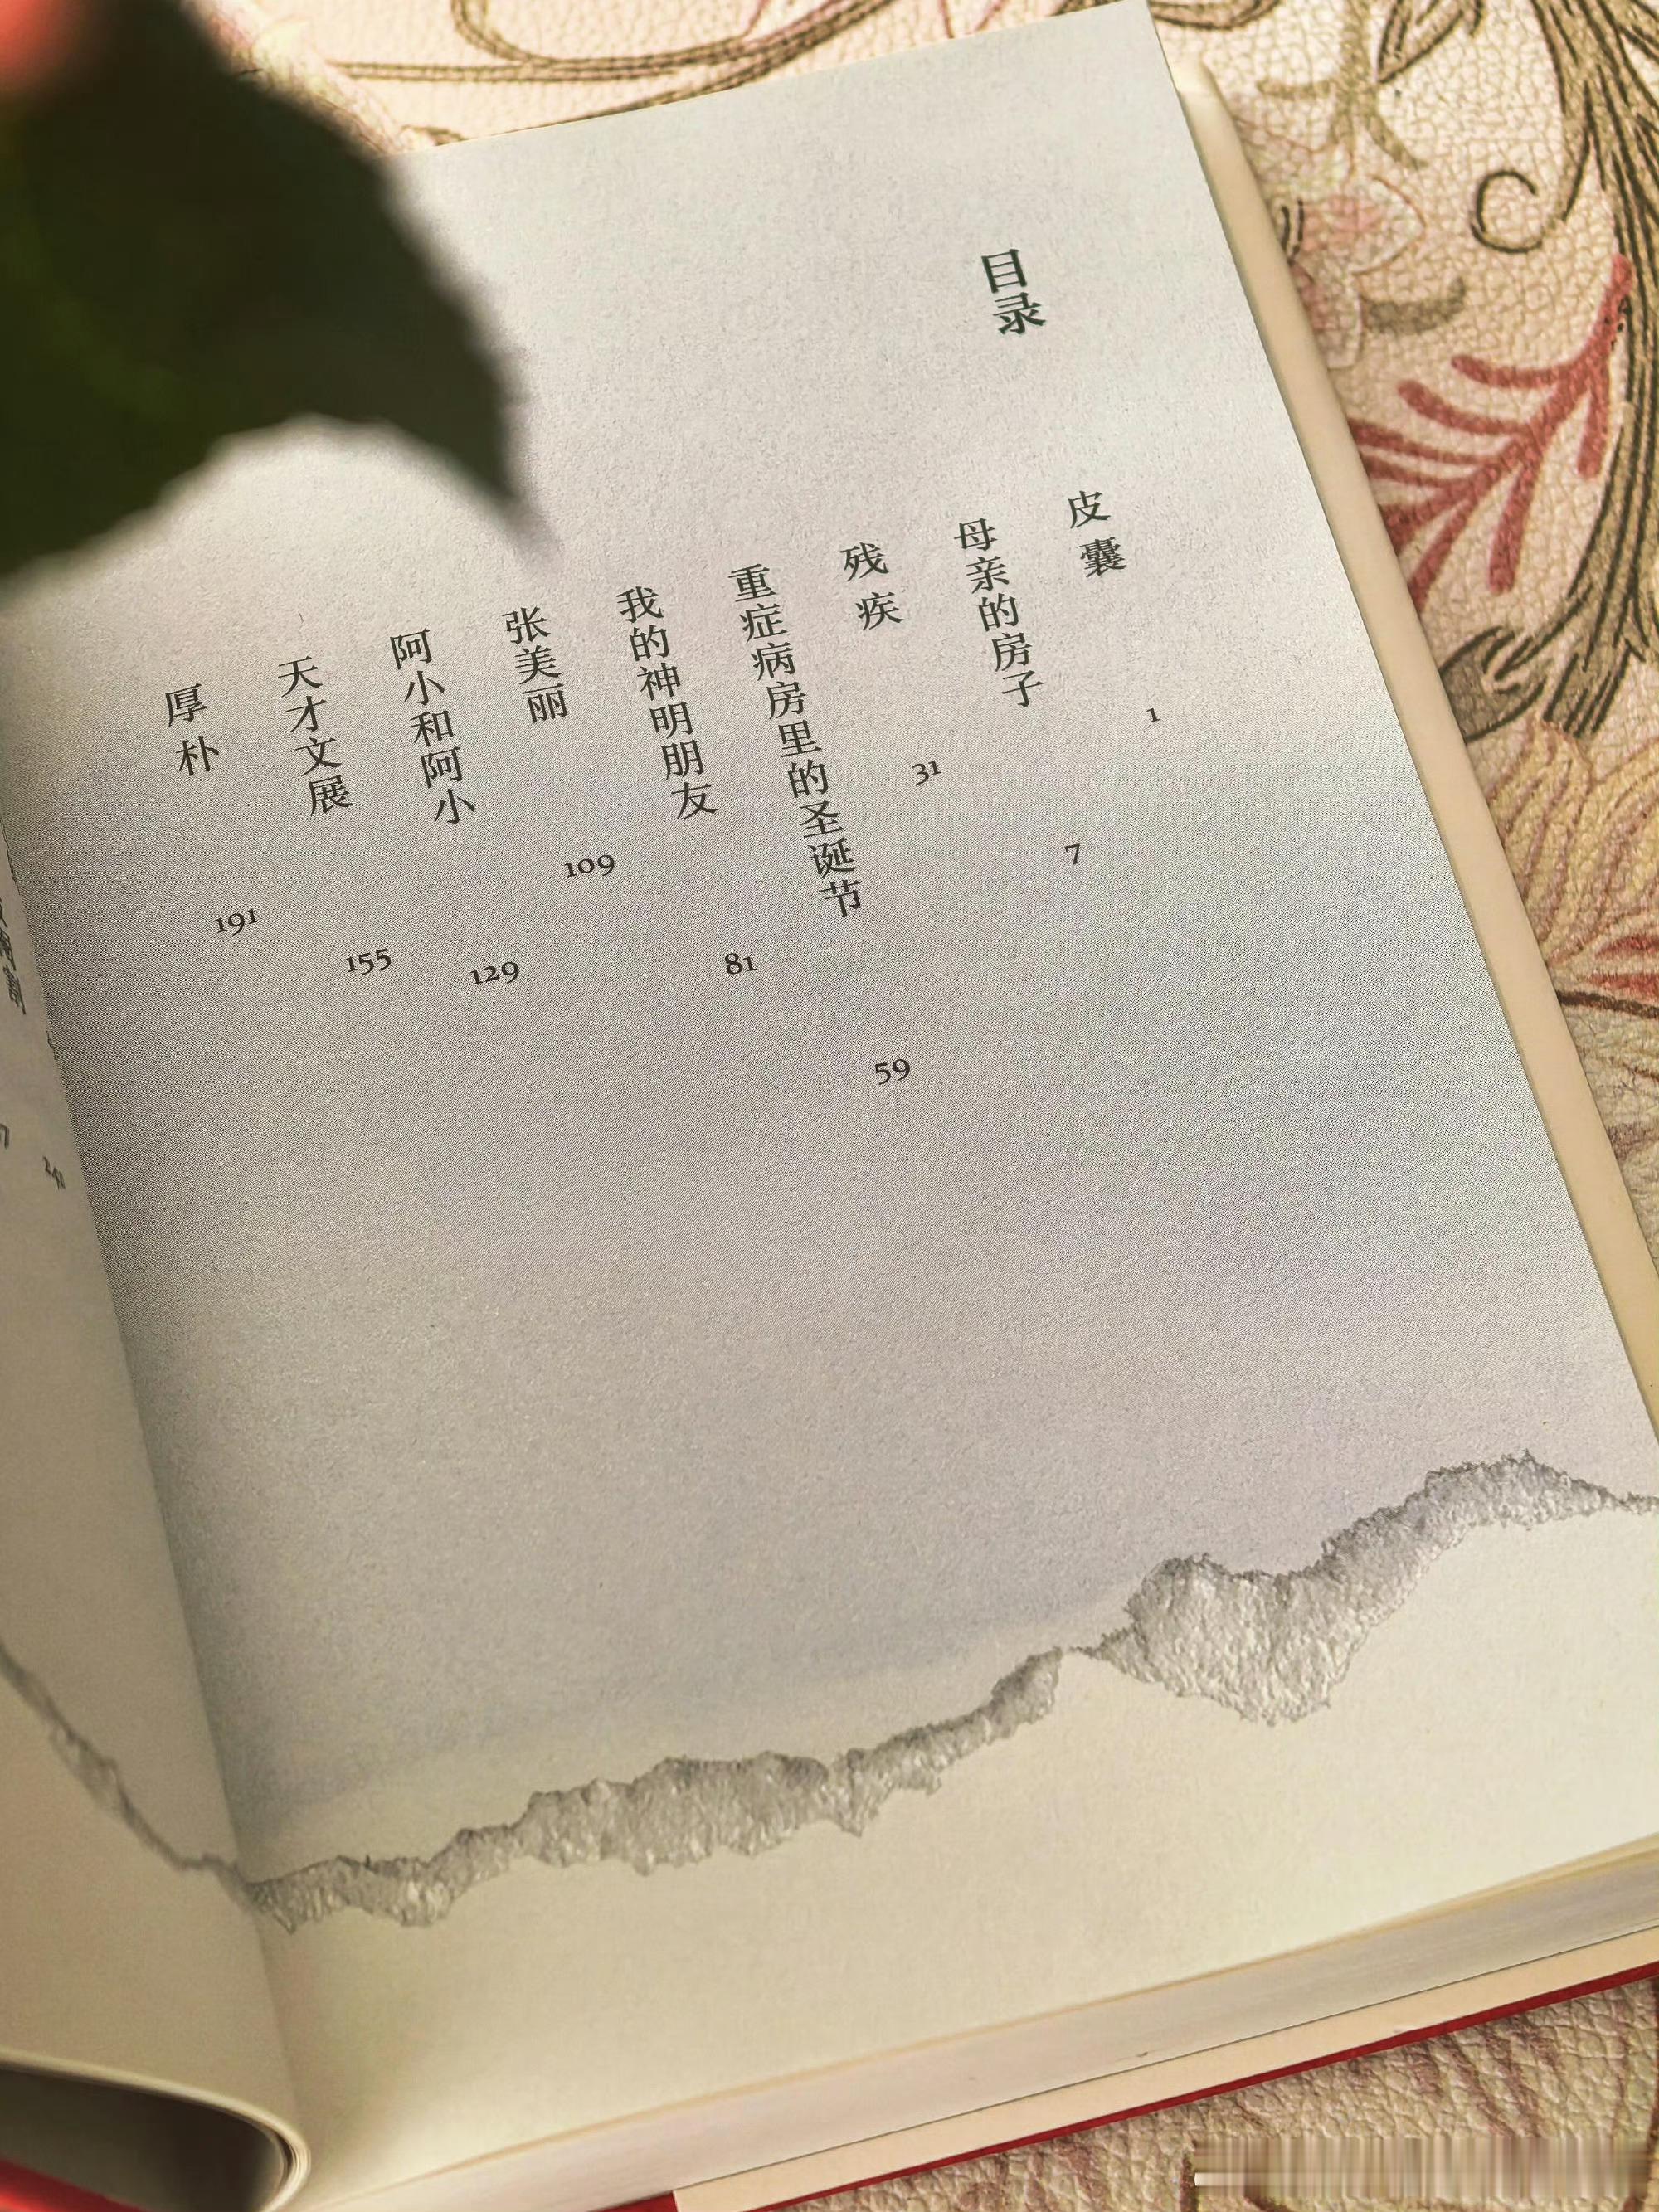 目录
皮囊 1
母亲的房子 7
残疾 31
重症病房里的圣诞节 59
我的神明朋友 81
张美丽 109
阿小和阿小 129
天才文展 155
厚朴 191